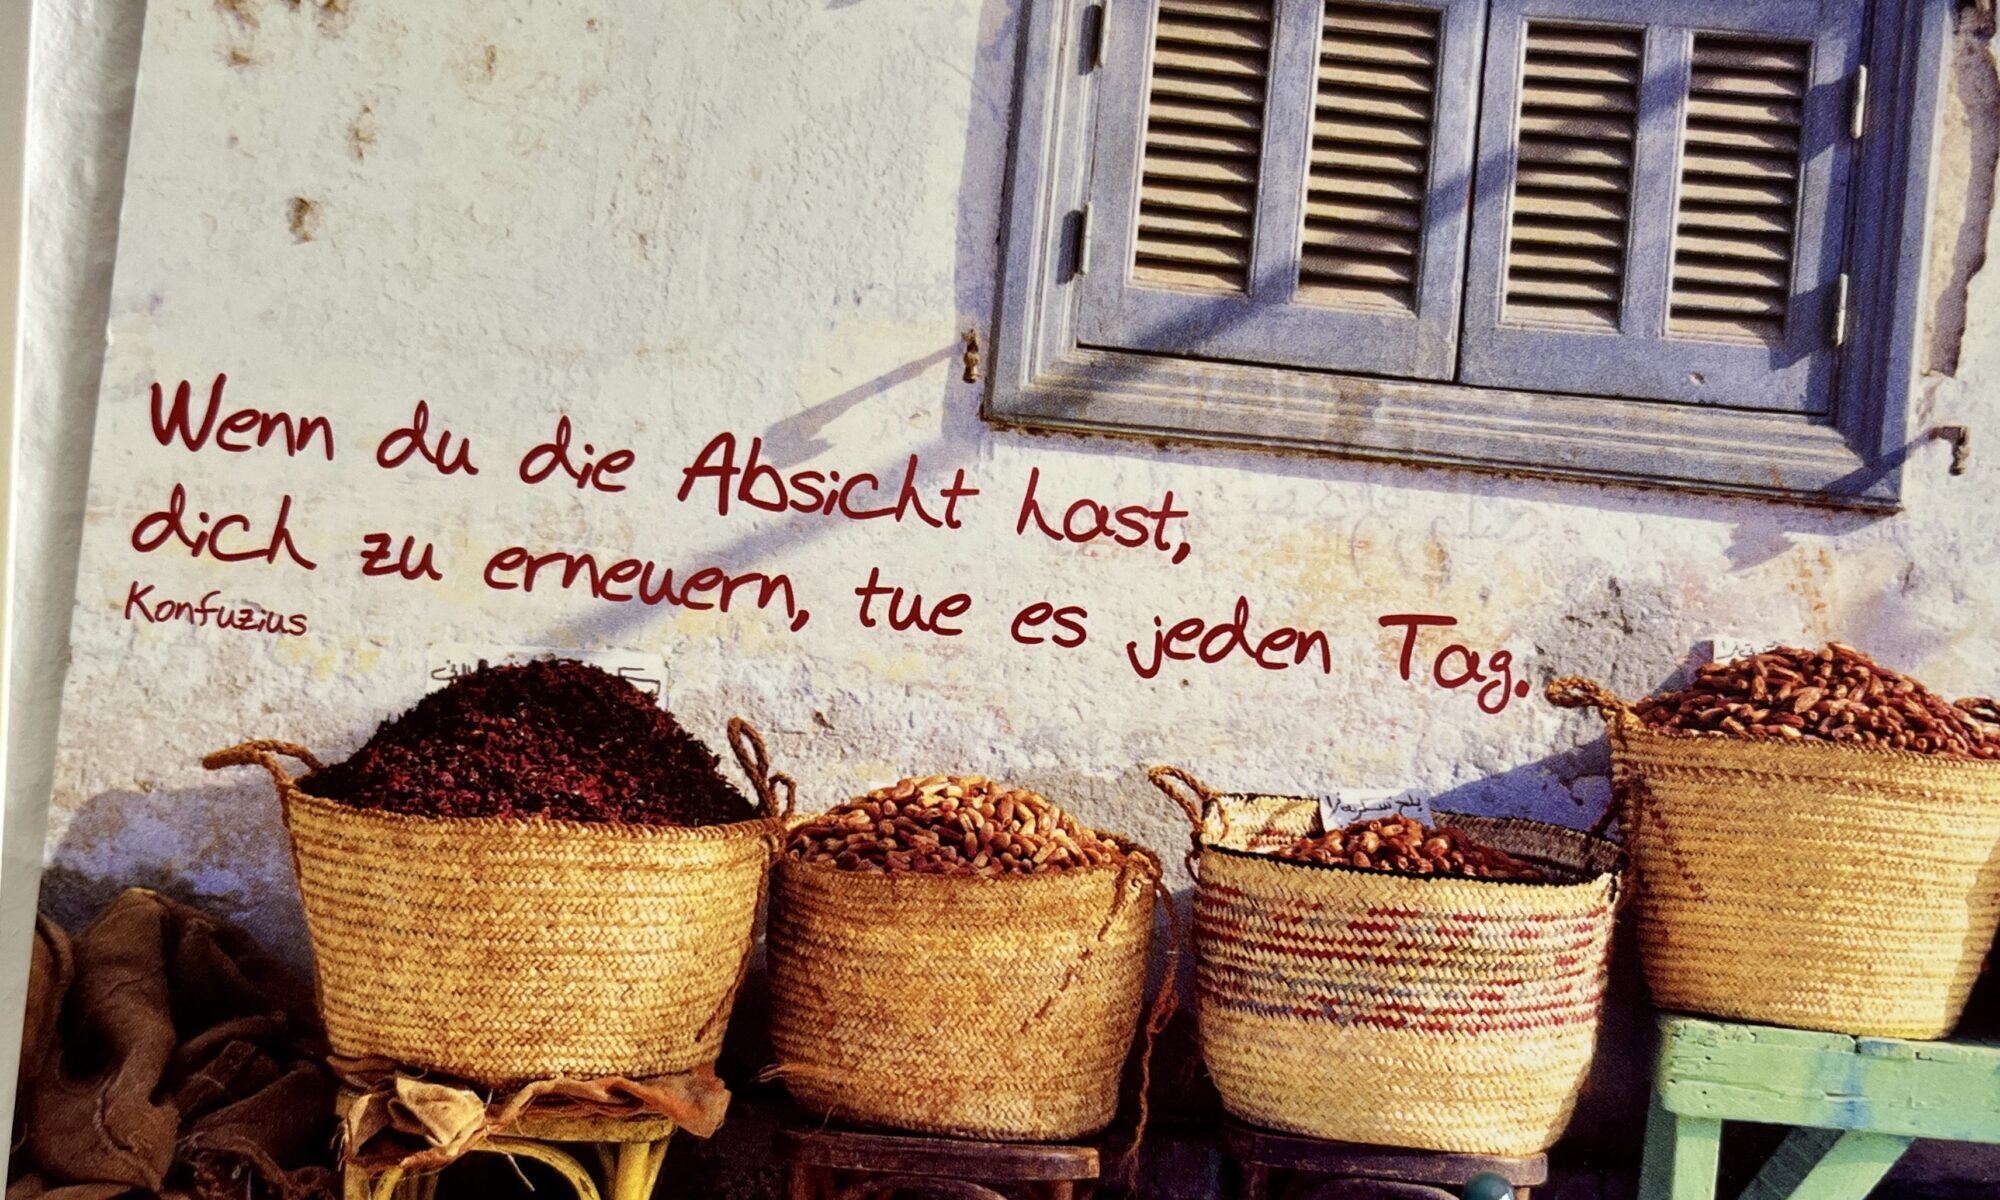 Wenn du die Absicht hast,
dich zu erneuern, tue es jeden Tag.
Konfuzius
بلح سكرية